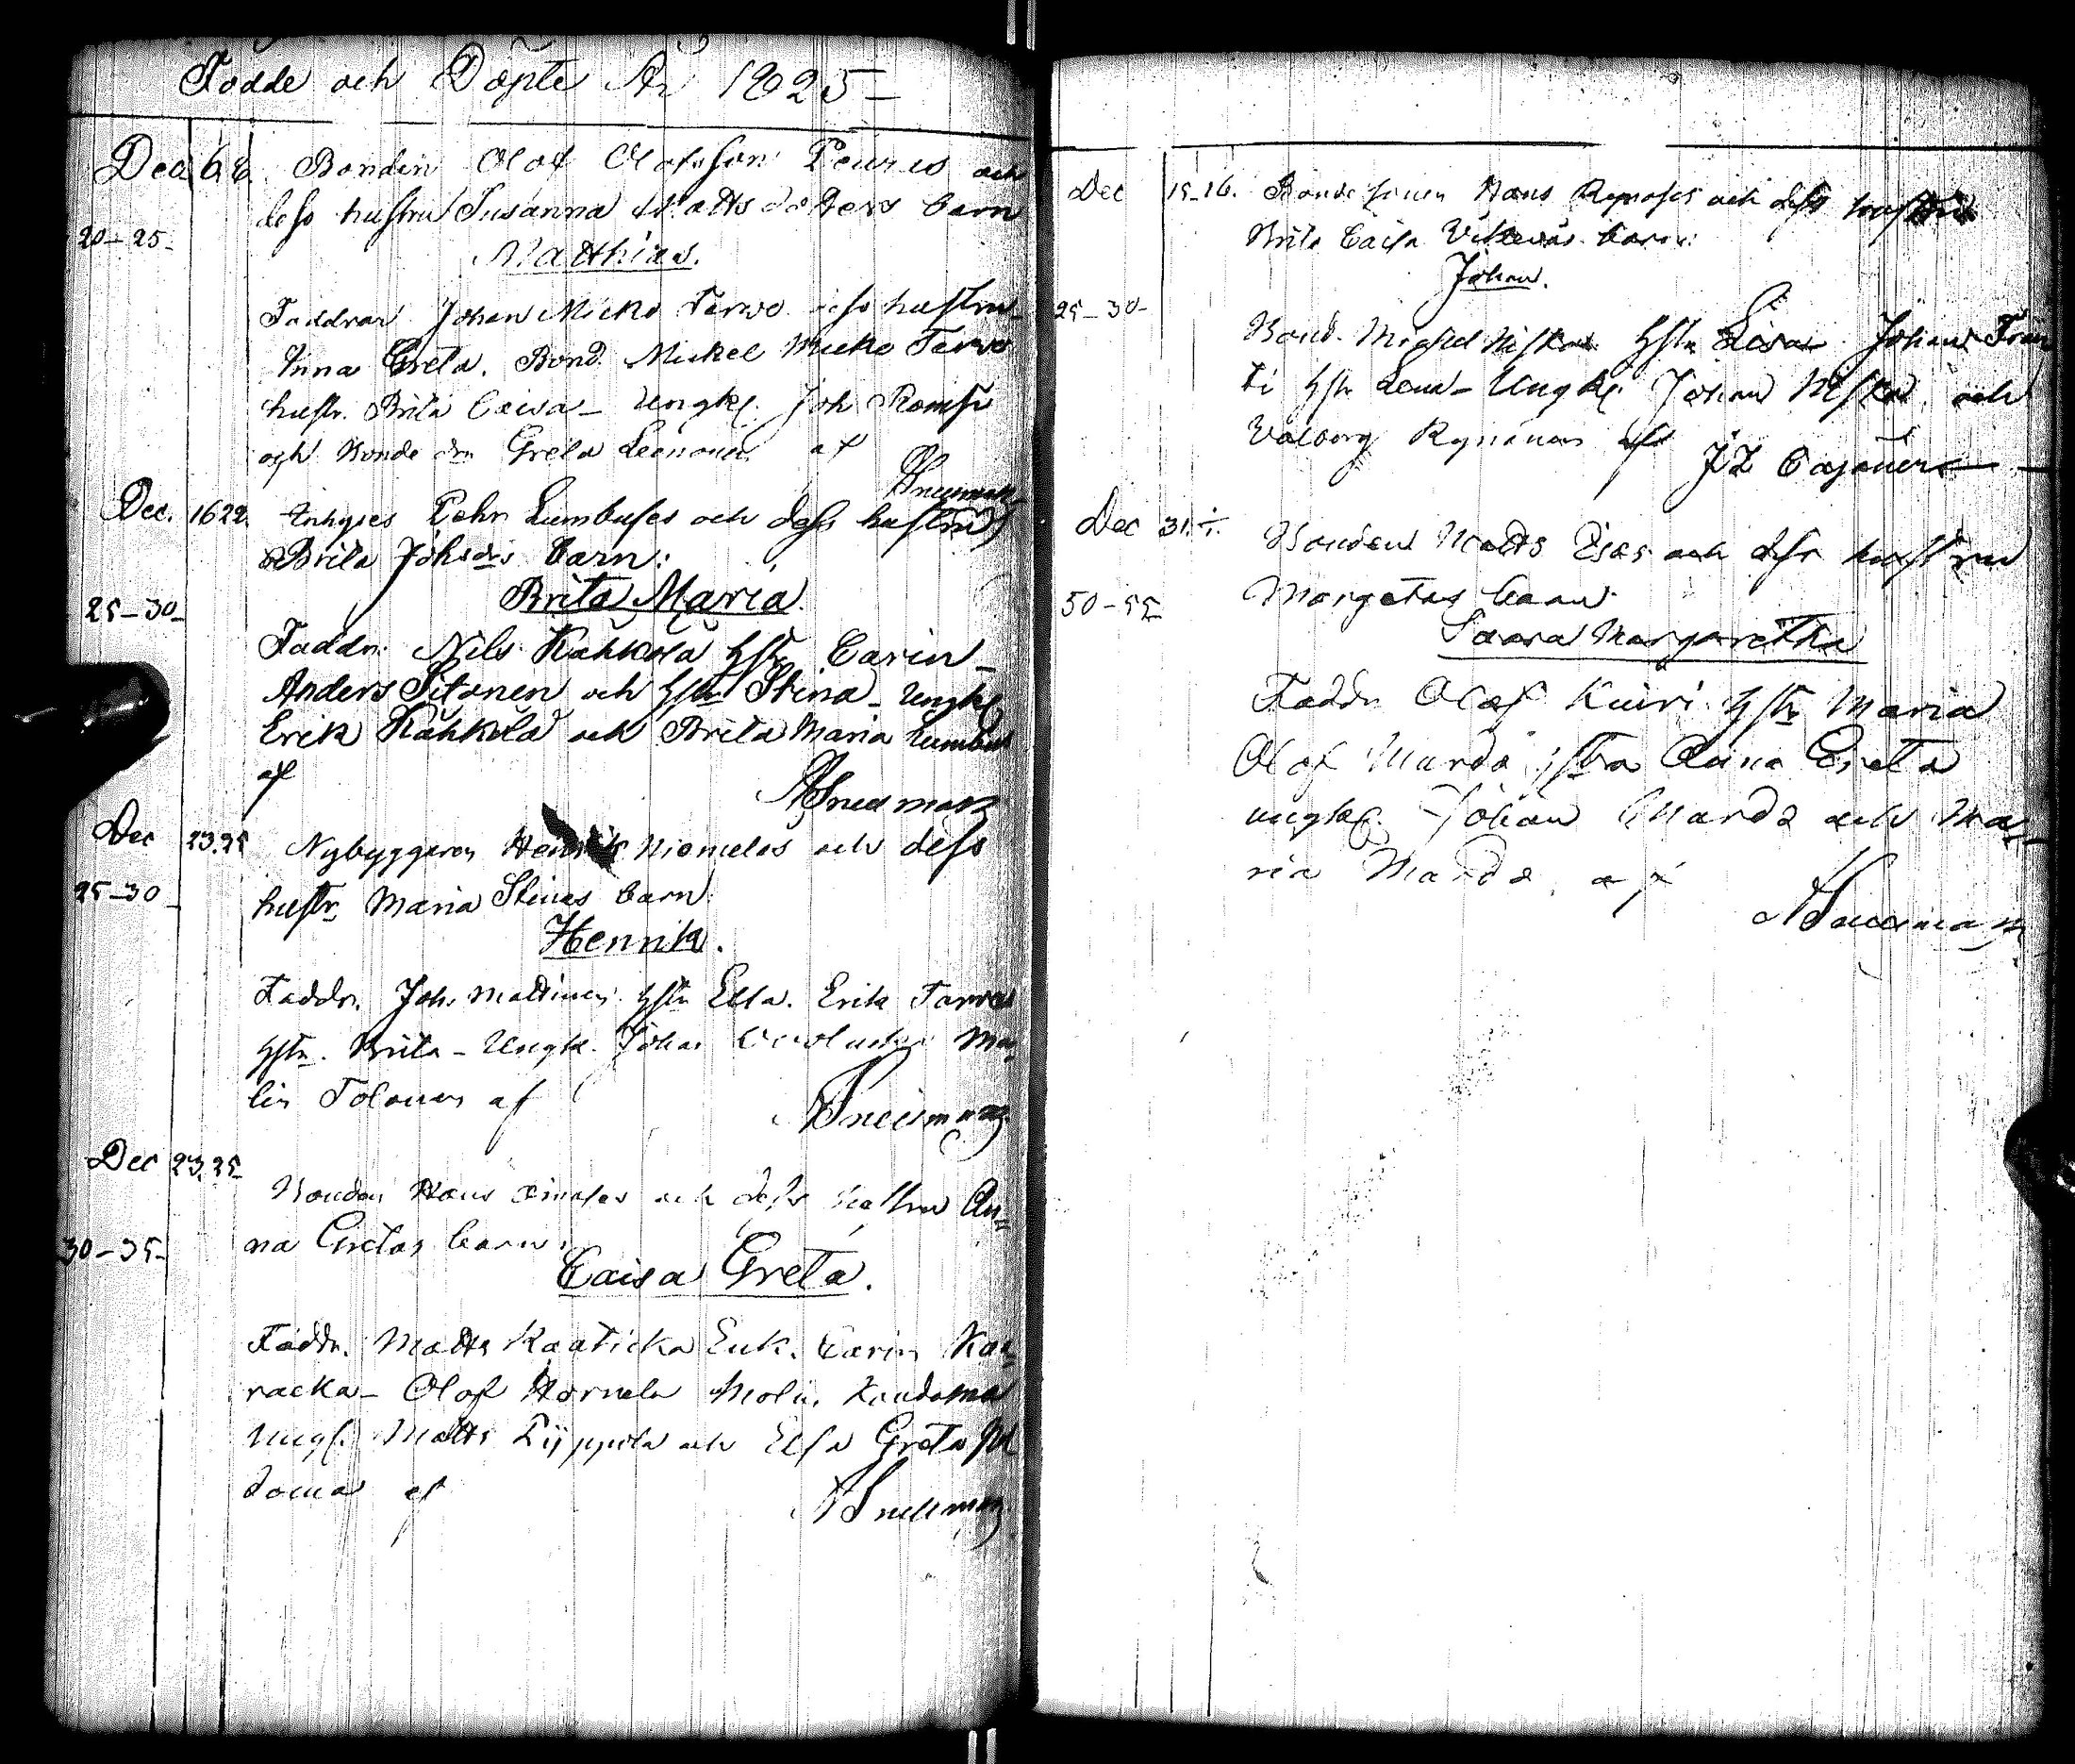 Födde och Döpte År 1825
Dec. 6. 8. Bonden Olof Olofsson Peuras och
dess hustru Susanna Mattsdotters barn
20-25-
Matthias.
Faddrar Johan Micko Tervo dess hustru
Anna Greta. Bond. Mickel Micko Tervo
hustr. Brita Caisa - Ungk. Joh
och Bonde dr Greta af
Snellman
Dec. 16 22. Inhyses Pehr Lumbuses och dess hustru
Brita Johsdrs barn:
Brita Maria
25-30-
Faddr. Nils Kähkölä hstr Carin -
Anders Sitonen och hstr Stina - Ungk.
Erik Kähkölä och Brita Maria Lumbus
af
Snellman
Dec 23.25 Nybyggaren Henrik Niemelas och dess
25-30 -
hustr. Maria Stinas barn:
Henrik.
Faddr. Joh. Mattinen hstr Ella. Erik Tarvas
hstr. Brita - Ungk. Johan Ma=
lin Tolonen af
Snellman
Dec 23.25
Bonden Hans och dess hustru An=
na Gretas barn.
30-35-
Caisa Greta.
Faddr. Matts Enk. Carin Ka=
racka - Olof Hornela
Ungk. Matts Pyppölä och Elsa Greta
af
Snellman
Dec 15-16. Bondesonen Hans och dess hustru
Brita Caisa barn:
Johan.
25-30-
Bond. Michel Niska hstr Lisa Johan Tran
ti hstr Lena - Ungk. Johan Niska och
Walborg Rynänen af
JZ Cajaner
Dec 31.
Bonden Matts och dess hustru
50-55
Margetas barn
Saara Margaretha
Faddr Olof Kuiri hstr Maria
Olof Murdo hstra Anna Greta
ungk. Johan Marda och Ma=
ria Marda af
Snellman